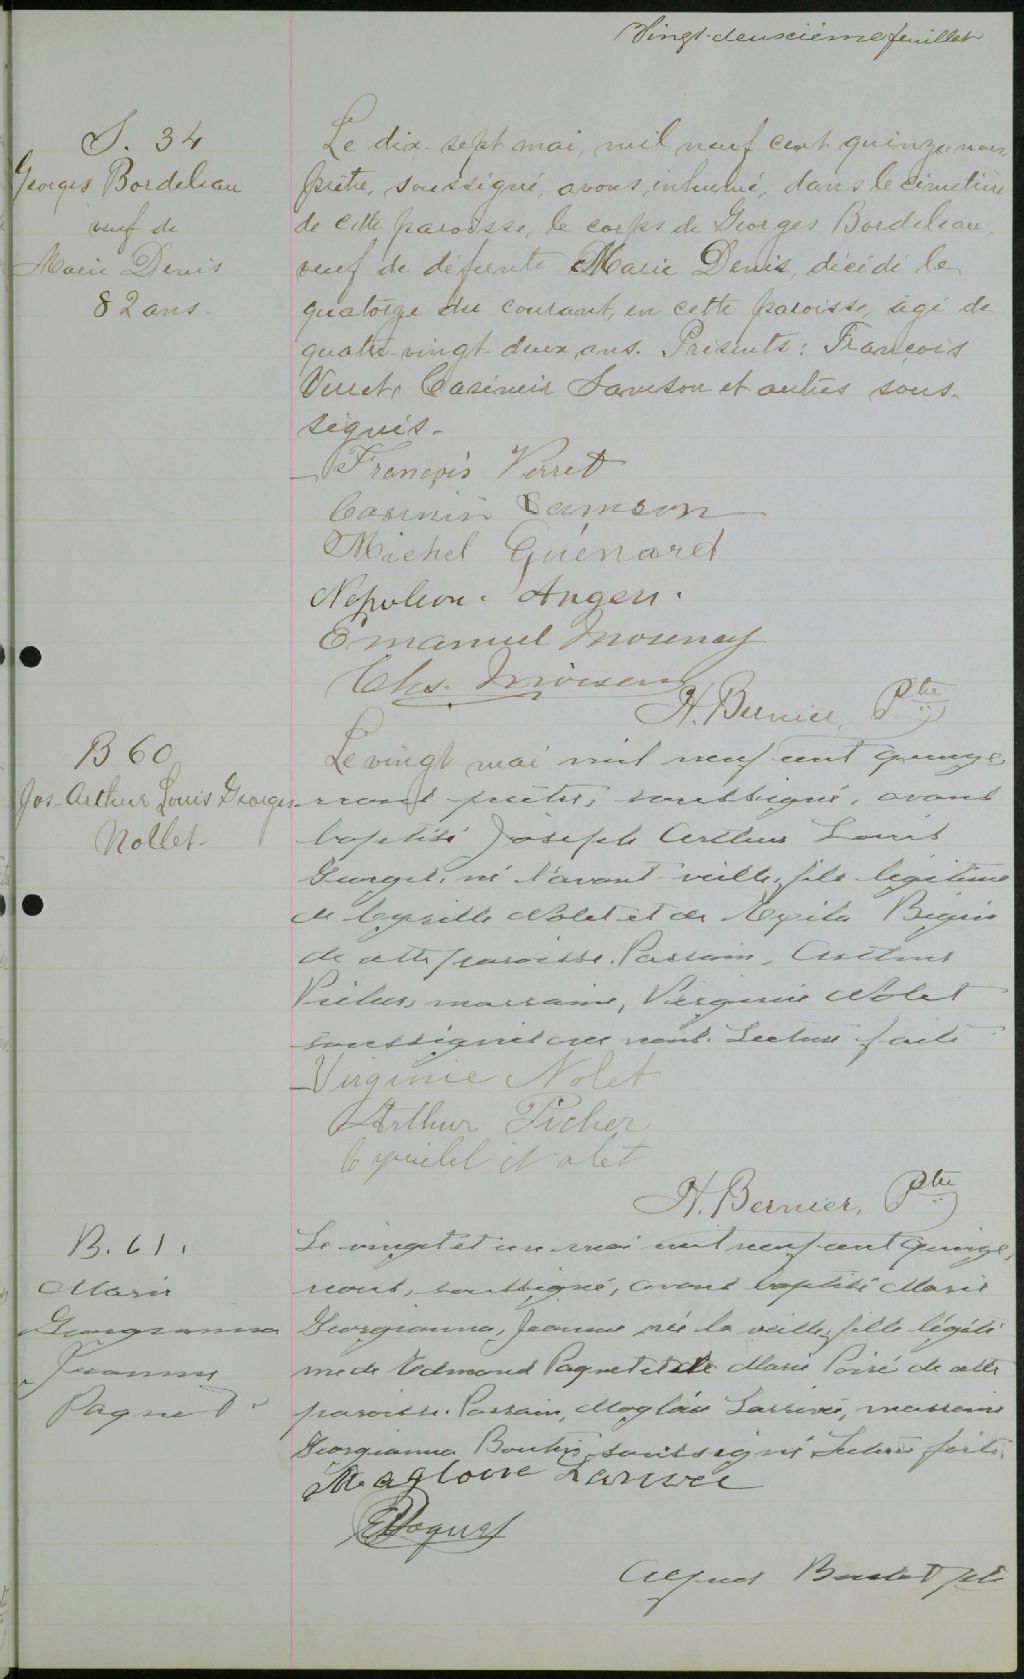 Vingt-deuxième feuillet
S. 34
Georges Bordeleau
veuf de
Marie Denis
82 ans.
Le dix-sept mai, mil neuf cent quinze, nous,
prêtre, soussigné, avons inhumé, dans le cimetière
de cette paroisse, le corps de Georges Bordeleau,
veuf de défunte Marie Denis, décédé le
quatorze du courant, en cette paroisse, âgé de
quatre-vingt-deux ans. Présents: François
Verret, Casimir Samson et autres sous-
signés.
François Verret
Casimir Samson
Michel Guénard
Napoleon Angers.
Emanuel
Chs.
H. Bernier, Ptre
B 60
Jos-Arthur Louis Georges
Nollet.
Le vingt mai mil neuf cent quinze
nous prêtre, soussigné, avons
baptisé Joseph Arthur Louis
Georges, né l'avant-veille, fils légitime
de Cyrille Nolet et de Bégin
de cette paroisse. Parrain, Arthur
marraine, Virginie Nolet
soussignés avec nous. Lecture faite
Virginie Nolet
Arthur Picher
Nolet
H. Bernier, Ptre
B. 61.
Marie
Georgianna
Jeanne
Paquet
Le vingt et un mai mil neuf cent quinze,
nous, soussigné, avons baptisé Marie
Georgianna, Jeanne née la veille, fille légiti
me de Edmond Paquet et de Marie Poiré de cette
paroisse. Parrain, Magloire Larrivée, marraine
Georgianna Boutin, soussigné Lecture faite.
Magloire Larrivée
E Paquet
Alfred ptre